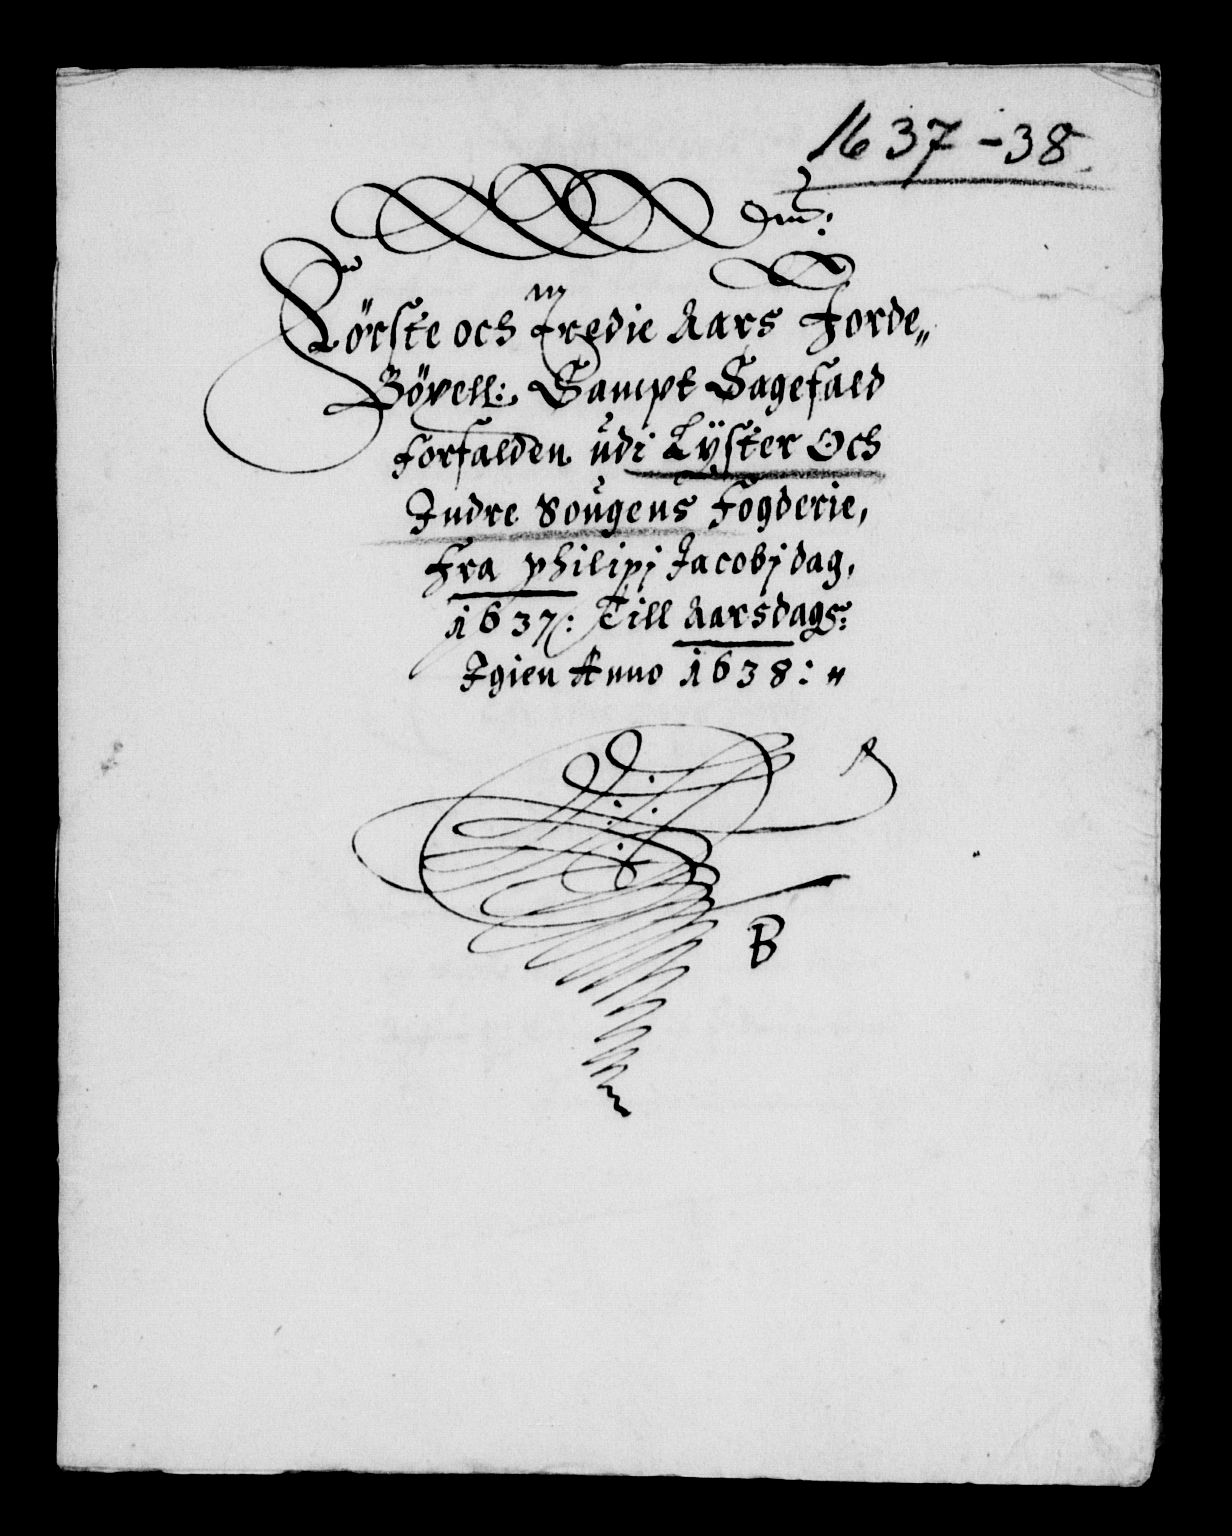 1637-38
Förste och Tredie Aars Jorde„
Böxell: Sampt Sagefald
forfalden udi Lÿster Och
Indre Sougens Fogderie,
Fra philipj Jacobj dag,
1637: Till Aarsdags:
Igien Anno 1638: „
B